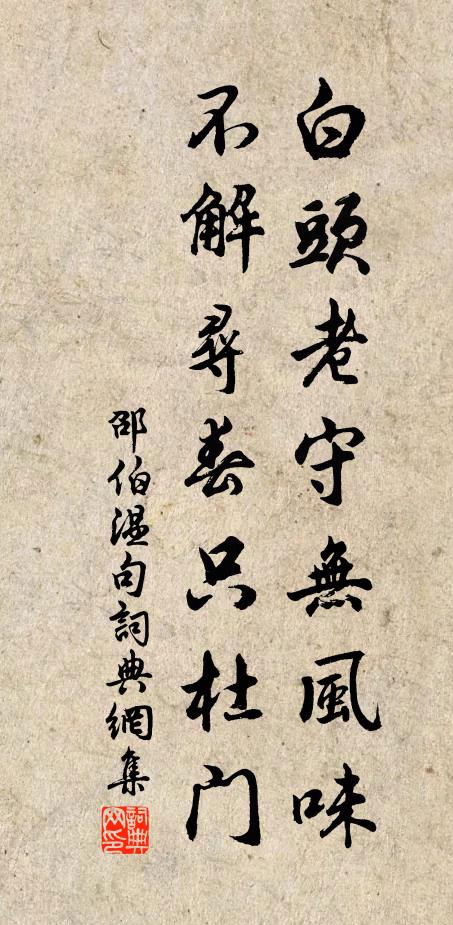 白頭老守無風味
不解尋春只杜门
邵伯温句詞典網集
詞典网印